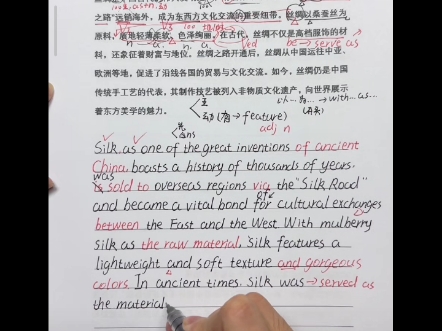 之路"远销海外，成为东西方文化交流的重要纽带。丝绸以桑蚕丝为
原料，质地轻薄柔软，色泽绚丽。在古代，丝绸不仅是高档服饰的材
料，还象征着财富与地位。丝绸之路开通后，丝绸从中国运往中亚、
欧洲等地，促进了沿线各国的贸易与文化交流。如今，丝绸仍是中国
传统手工艺的代表，其制作技艺被列入非物质文化遗产，向世界展示
着东方美学的魅力。
be → serve as
with…as…
→ feature
adj n
Silk, as one of the great inventions of ancient
China, boasts a history of thousands of years.
was
is sold to overseas regions via the "Silk Road"
and became a vital bond for cultural exchanges
of
between the East and the West. With mulberry
silk as the raw material, silk features a
lightweight and soft texture and gorgeous
colors. In ancient times, silk was → served as
the material